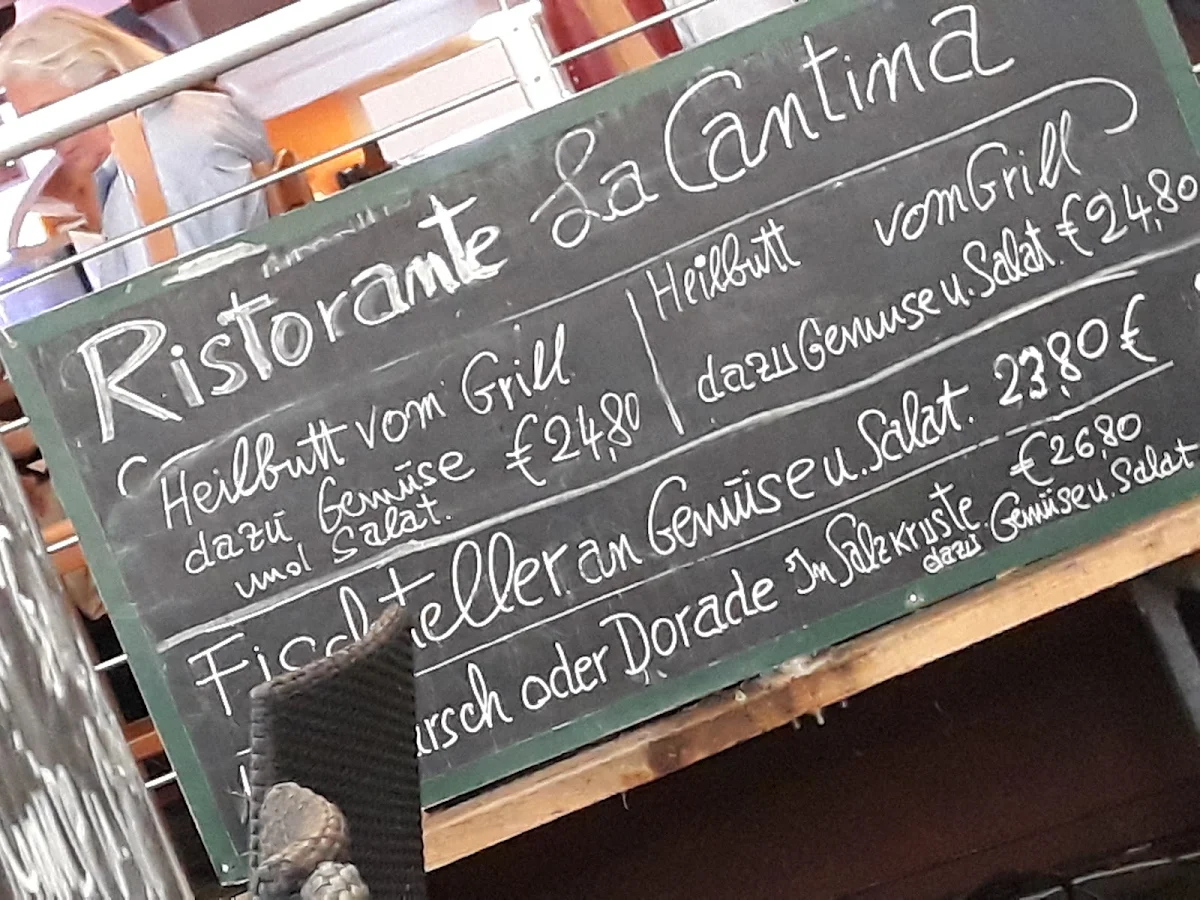 Ristorante La Cantina
Heilbutt vom Grill
dazu Gemüse €24,80
und Salat.
Heilbutt vom Grill
dazu Gemuse u. Salat. €24,80
Fischteller an Gemüse u. Salat. 23,80 €
oder Dorade Im Salzkruste €26,80
dazu Gemüse u. Salat